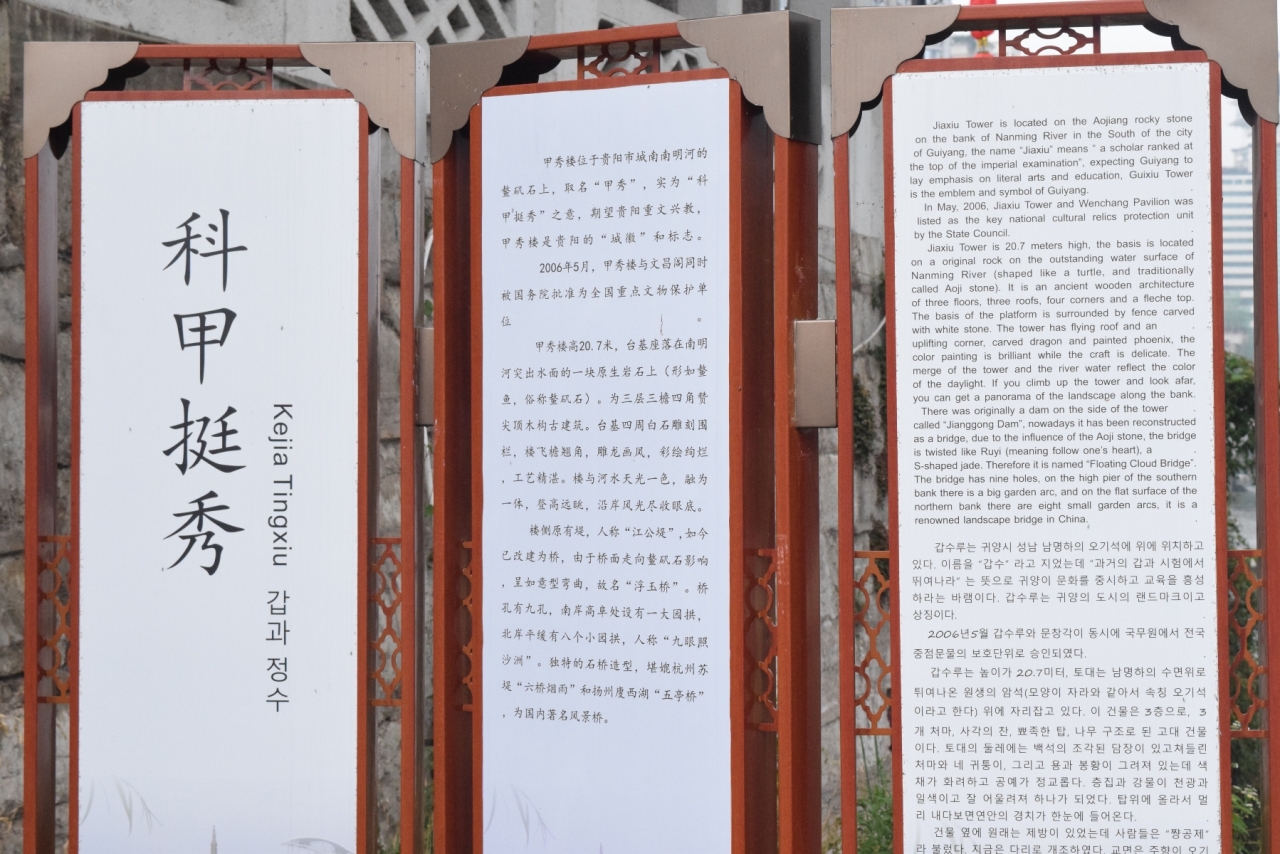 科甲挺秀
Kejia Tingxiu 갑과 정수
甲秀楼位于贵阳市城南南明河的
鳌矶石上，取名“甲秀”，实为“科
甲挺秀”之意，期望贵阳重文兴教，
甲秀楼是贵阳的“城徽”和标志。
2006年5月，甲秀楼与文昌阁同时
被国务院批准为全国重点文物保护单
位。
甲秀楼高20.7米，台基座落在南明
河突出水面的一块原生岩石上（形如鳌
鱼，俗称鳌矶石）。为三层三檐四角攒
尖顶木构古建筑。台基四周白石雕刻围
栏，楼飞檐翘角，雕龙画凤，彩绘绚烂
，工艺精湛。楼与河水天光一色，融为
一体，登高远眺，沿岸风光尽收眼底。
楼侧原有堤，人称“江公堤”,如今
已改建为桥，由于桥面走向鳌矶石影响
，呈如意型弯曲，故名“浮玉桥”。桥
孔有九孔，南岸高阜处设有一大园拱，
北岸平缓有八个小园拱，人称“九眼照
沙洲”。独特的石桥造型，堪媲杭州苏
堤“六桥烟雨”和扬州廋西湖“五亭桥”
，为国内著名风景桥。
Jiaxiu Tower is located on the Aojiang rocky stone
on the bank of Nanming River in the South of the city
of Guiyang, the name “Jiaxiu” means “ a scholar ranked at
the top of the imperial examination”, expecting Guiyang to
lay emphasis on literal arts and education, Guixiu Tower
is the emblem and symbol of Guiyang.
In May, 2006, Jiaxiu Tower and Wenchang Pavilion was
listed as the key national cultural relics protection unit
by the State Council.
Jiaxiu Tower is 20.7 meters high, the basis is located
on a original rock on the outstanding water surface of
Nanming River (shaped like a turtle, and traditionally
called Aoji stone). It is an ancient wooden architecture
of three floors, three roofs, four corners and a fleche top.
The basis of the platform is surrounded by fence carved
with white stone. The tower has flying roof and an
uplifting corner, carved dragon and painted phoenix, the
color painting is brilliant while the craft is delicate. The
merge of the tower and the river water reflect the color
of the daylight. If you climb up the tower and look afar,
you can get a panorama of the landscape along the bank.
There was originally a dam on the side of the tower
called “Jianggong Dam”, nowadays it has been reconstructed
as a bridge, due to the influence of the Aoji stone, the bridge
is twisted like Ruyi (meaning follow one's heart), a
S-shaped jade. Therefore it is named “Floating Cloud Bridge”.
The bridge has nine holes, on the high pier of the southern
bank there is a big garden arc, and on the flat surface of the
northern bank there are eight small garden arcs, it is a
renowned landscape bridge in China.
갑수루는 귀양시 성남 남명하의 오기석에 위에 위치하고
있다. 이름을 “갑수” 라고 지었는데 “과거의 갑과 시험에서
뛰여나라” 는 뜻으로 귀양이 문화를 중시하고 교육을 흥성
하라는 바램이다. 갑수루는 귀양의 도시의 랜드마크이고
상징이다.
2006년5월 갑수루와 문창각이 동시에 국무원에서 전국
중점문물의 보호단위로 승인되였다.
갑수루는 높이가 20.7미터, 토대는 남명하의 수면위로
튀여나온 원생의 암석(모양이 자라와 같아서 속칭 오기석
이라고 한다) 위에 자리잡고 있다. 이 건물은 3층으로, 3
개 처마, 사각의 찬, 뾰족한 탑, 나무 구조로 된 고대 건물
이다. 토대의 둘레에는 백석의 조각된 담장이 있고쳐들린
처마와 네 귀퉁이, 그리고 용과 봉황이 그려져 있는데 색
채가 화려하고 공예가 정교롭다. 층집과 강물이 천광과
일색이고 잘 어울려져 하나가 되였다. 탑위에 올라서 멀
리 내다보면연안의 경치가 한눈에 들어온다.
건물 옆에 원래는 제방이 있었는데 사람들은 “쨩공제”
라 불렀다. 지금은 다리로 개조하였다. 교면은 주향이 오기